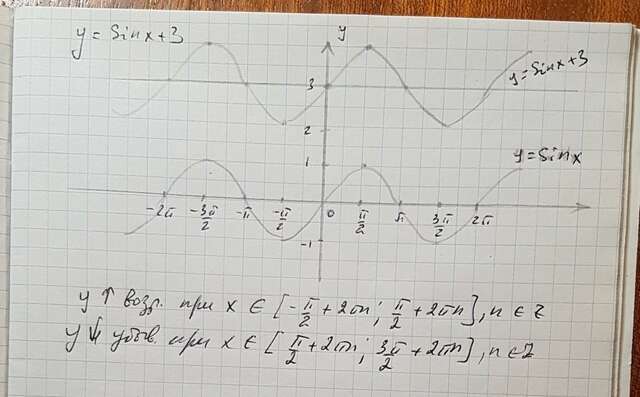 y = Sinx+3
y
3
y=Sinx+3
2
1
y=Sinx
-2π -3π/2 -π -π/2 0 π/2 π 3π/2 2π
-1
y ↑ возр. при x ∈ [-π/2 + 2πn; π/2 + 2πn], n ∈ Z
y ↓ убыв. при x ∈ [π/2 + 2πn; 3π/2 + 2πn], n ∈ Z